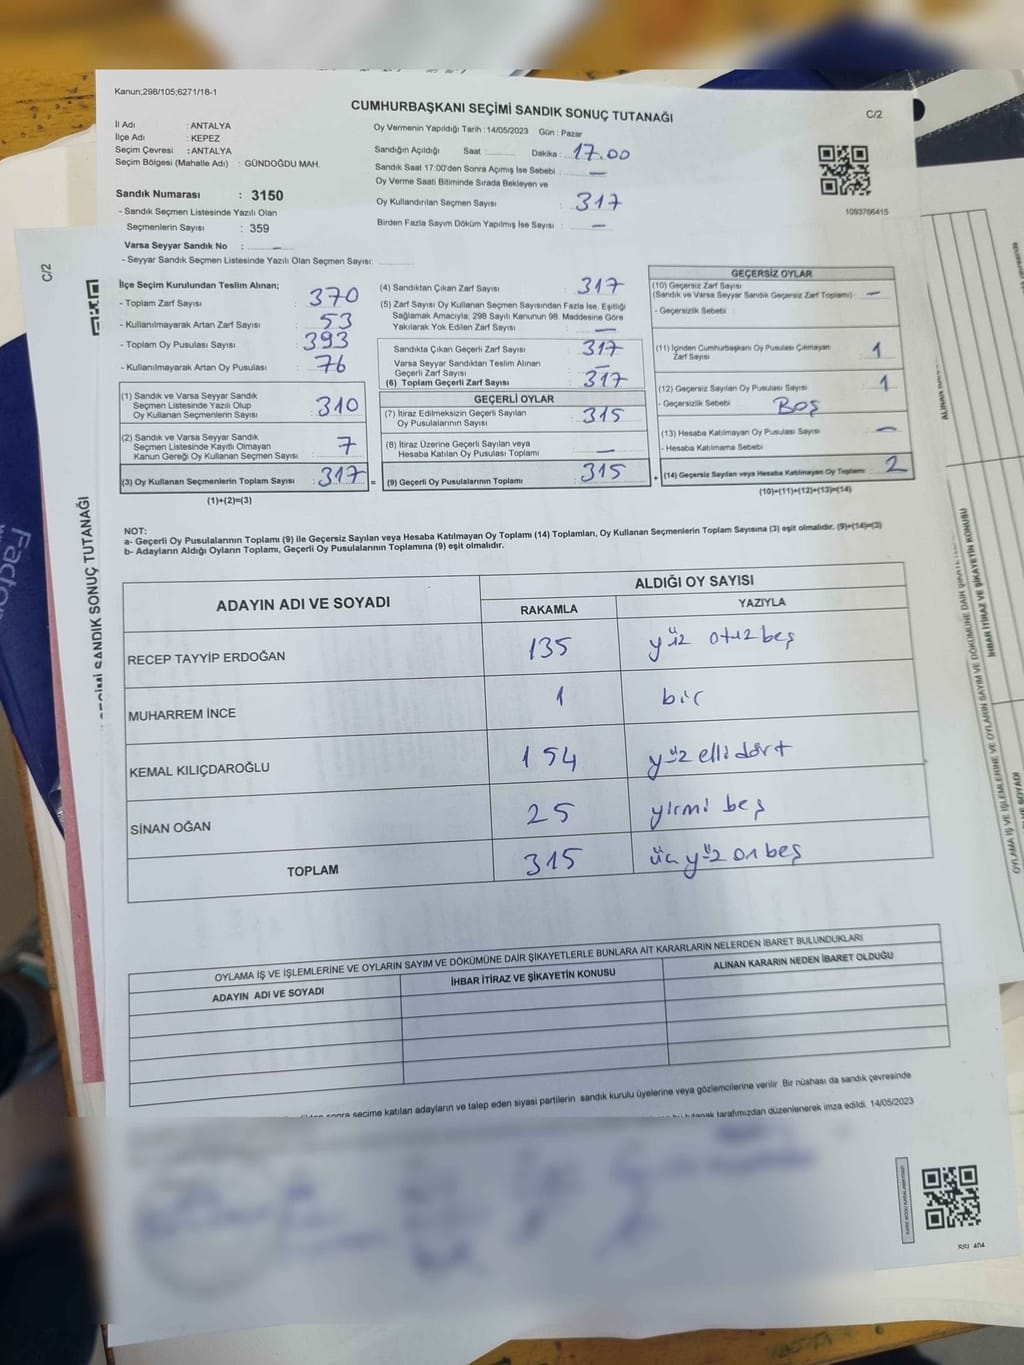 Kanun;298/105;6271/18-1
CUMHURBAŞKANI SEÇİMİ SANDIK SONUÇ TUTANAĞI
C/2
İl Adı : ANTALYA
İlçe Adı : KEPEZ
Seçim Çevresi : ANTALYA
Seçim Bölgesi (Mahalle Adı) : GÜNDOĞDU MAH.
Sandık Numarası : 3150
- Sandık Seçmen Listesinde Yazılı Olan
Seçmenlerin Sayısı : 359
Varsa Seyyar Sandık No : –
- Seyyar Sandık Seçmen Listesinde Yazılı Olan Seçmen Sayısı:
Oy Vermenin Yapıldığı Tarih : 14/05/2023 Gün : Pazar
Sandığın Açıldığı Saat : Dakika : 17.00
Sandık Saat 17:00'den Sonra Açımış İse Sebebi : –
Oy Verme Saati Bitiminde Sırada Bekleyen ve
Oy Kullandırılan Seçmen Sayısı : 317
Birden Fazla Sayım Döküm Yapılmış İse Sayısı : –
1093766415
İlçe Seçim Kurulundan Teslim Alınan;
- Toplam Zarf Sayısı : 370
- Kullanılmayarak Artan Zarf Sayısı : 53
- Toplam Oy Pusulası Sayısı : 393
- Kullanılmayarak Artan Oy Pusulası : 76
(1) Sandık ve Varsa Seyyar Sandık
Seçmen Listesinde Yazılı Olup
Oy Kullanan Seçmenlerin Sayısı : 310
(2) Sandık ve Varsa Seyyar Sandık
Seçmen Listesinde Kayıtlı Olmayan
Kanun Gereği Oy Kullanan Seçmen Sayısı : 7
(3) Oy Kullanan Seçmenlerin Toplam Sayısı : 317 =
(1)+(2)=(3)
(4) Sandıktan Çıkan Zarf Sayısı : 317
(5) Zarf Sayısı Oy Kullanan Seçmen Sayısından Fazla İse, Eşitliği
Sağlamak Amacıyla; 298 Sayılı Kanunun 98. Maddesine Göre
Yakılarak Yok Edilen Zarf Sayısı : –
Sandıkta Çıkan Geçerli Zarf Sayısı : 317
Varsa Seyyar Sandıktan Teslim Alınan
Geçerli Zarf Sayısı : –
(6) Toplam Geçerli Zarf Sayısı : 317
GEÇERLİ OYLAR
(7) İtiraz Edilmeksizin Geçerli Sayılan
Oy Pusulalarının Sayısı : 315
(8) İtiraz Üzerine Geçerli Sayılan veya
Hesaba Katılan Oy Pusulası Toplamı : –
(9) Geçerli Oy Pusulalarının Toplamı : 315 +
GEÇERSİZ OYLAR
(10) Geçersiz Zarf Sayısı
(Sandık ve Varsa Seyyar Sandık Geçersiz Zarf Toplamı) : –
- Geçersizlik Sebebi :
(11) İçinden Cumhurbaşkanı Oy Pusulası Çıkmayan
Zarf Sayısı : 1
(12) Geçersiz Sayılan Oy Pusulası Sayısı : 1
- Geçersizlik Sebebi : BOŞ
(13) Hesaba Katılmayan Oy Pusulası Sayısı : –
- Hesaba Katılmama Sebebi :
(14) Geçersiz Sayılan veya Hesaba Katılmayan Oy Toplamı : 2
(10)+(11)+(12)+(13)=(14)
NOT:
a- Geçerli Oy Pusulalarının Toplamı (9) ile Geçersiz Sayılan veya Hesaba Katılmayan Oy Toplamı (14) Toplamları, Oy Kullanan Seçmenlerin Toplam Sayısına (3) eşit olmalıdır. (9)+(14)=(3)
b- Adayların Aldığı Oyların Toplamı, Geçerli Oy Pusulalarının Toplamına (9) eşit olmalıdır.
ADAYIN ADI VE SOYADI
ALDIĞI OY SAYISI
RAKAMLA YAZIYLA
RECEP TAYYİP ERDOĞAN 135 yüz otuz beş
MUHARREM İNCE 1 bir
KEMAL KILIÇDAROĞLU 154 yüz elli dört
SİNAN OĞAN 25 yirmi beş
TOPLAM 315 üç yüz on beş
OYLAMA İŞ VE İŞLEMLERİNE VE OYLARIN SAYIM VE DÖKÜMÜNE DAİR ŞİKAYETLERLE BUNLARA AİT KARARLARIN NELERDEN İBARET BULUNDUKLARI
ADAYIN ADI VE SOYADI İHBAR İTİRAZ VE ŞİKAYETİN KONUSU ALINAN KARARIN NEDEN İBARET OLDUĞU
sonra seçime katılan adayların ve talep eden siyasi partilerin sandık kurulu üyelerine veya gözlemcilerine verilir. Bir nüshası da sandık çevresinde
bu tutanak tarafımızdan düzenlenerek imza edildi. 14/05/2023
C/2
SEÇİMİ SANDIK SONUÇ TUTANAĞI
OYLAMA İŞ VE İŞLEMLERİNE VE OYLARIN SAYIM VE DÖKÜMÜNE DAİR
İHBAR İTİRAZ VE ŞİKAYETİN KONUSU